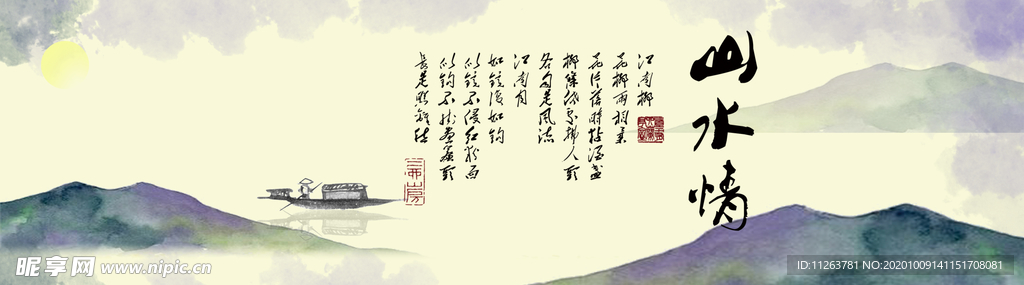 山水情
江南柳
花柳两相柔
花片落时黏酒盏
柳条低处拂人头
各自是风流
江南月
如镜复如钩
似镜不侵红粉面
似钩不挂画帘头
长是照离愁
昵享网 www.nipic.cn
ID:11263781 NO:20201009141151708081